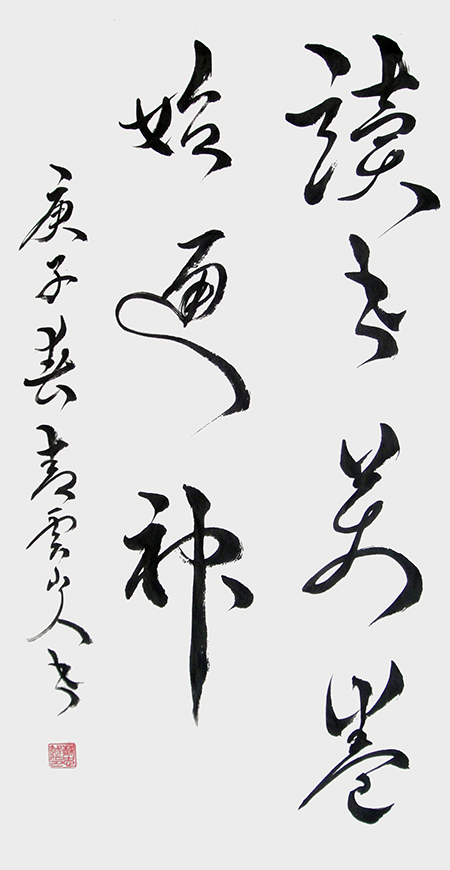 讀書萬卷
始通神
庚子春青雲山人書